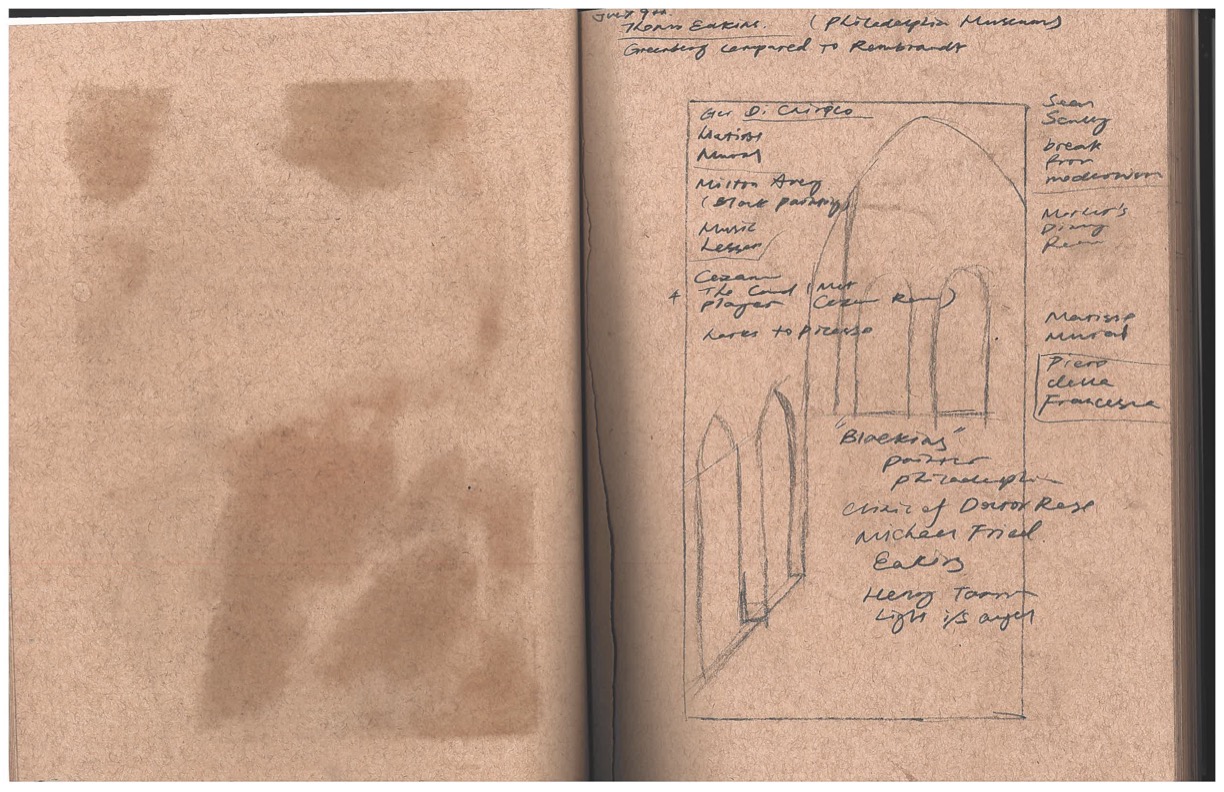 July 9th
Thomas Eakins. (Philadelphia Museum)
Greenberg compared to Rembrandt
Di Chirico
Matisse
Mural
Milton Avery
(Black painting)
Music
Lesson
Cezanne
The Card (Met
player Cezanne Room)
to Picasso
Sean
Scully
break
from
modernism
Morter's
Diary
Room
Matisse
Mural
Piero
della
Francesca
"Blackins"
painter
Philadelphia
Clinic of Doctor
Michael Fried.
Eakins
Henry Tanner
Light angel